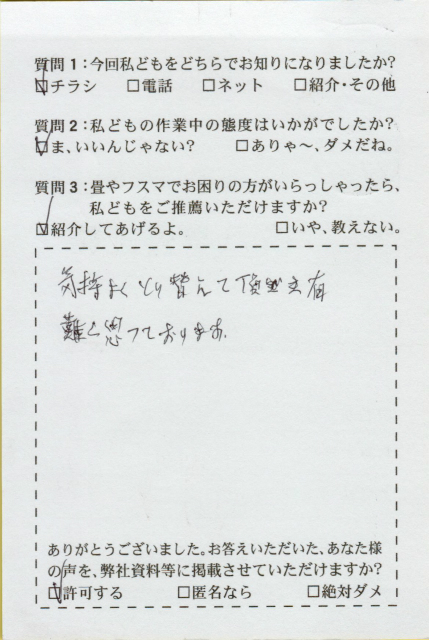 質問1:今回私どもをどちらでお知りになりましたか?
☑チラシ □電話 □ネット □紹介・その他
質問2:私どもの作業中の態度はいかがでしたか?
☑ま、いいんじゃない? □ありゃ〜、ダメだね。
質問3:畳やフスマでお困りの方がいらっしゃったら、
私どもをご推薦いただけますか?
☑紹介してあげるよ。 □いや、教えない。
気持よくとり替えて頂き有
難く思っております。
ありがとうございました。お答えいただいた、あなた様
の声を、弊社資料等に掲載させていただけますか?
☑許可する □匿名なら □絶対ダメ